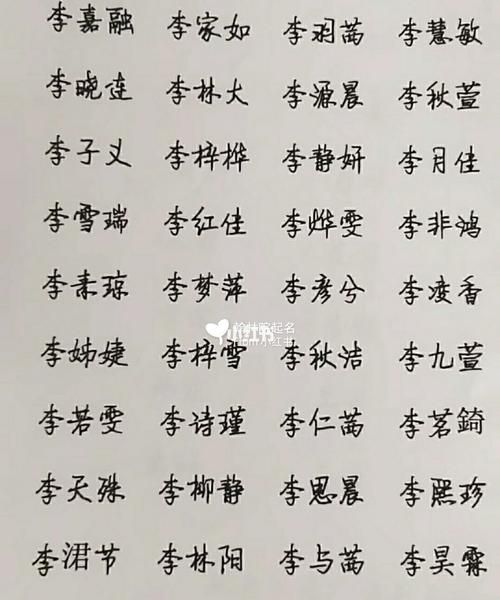 李嘉融 李家如 李羽茜 李慧敏
李晓连 李林大 李源晨 李秋萱
李子义 李梓桦 李静妍 李月佳
李雪瑞 李红佳 李烨雯 李非鸿
李素琼 李梦萍 李彦兮 李凌香
李姊婕 李梓雪 李秋洁 李九萱
李若雯 李诗瑾 李仁茜 李茗錡
李天殊 李柳静 李思晨 李熙珍
李涒节 李林阳 李与茜 李昊霖
起名
小红书
小红书